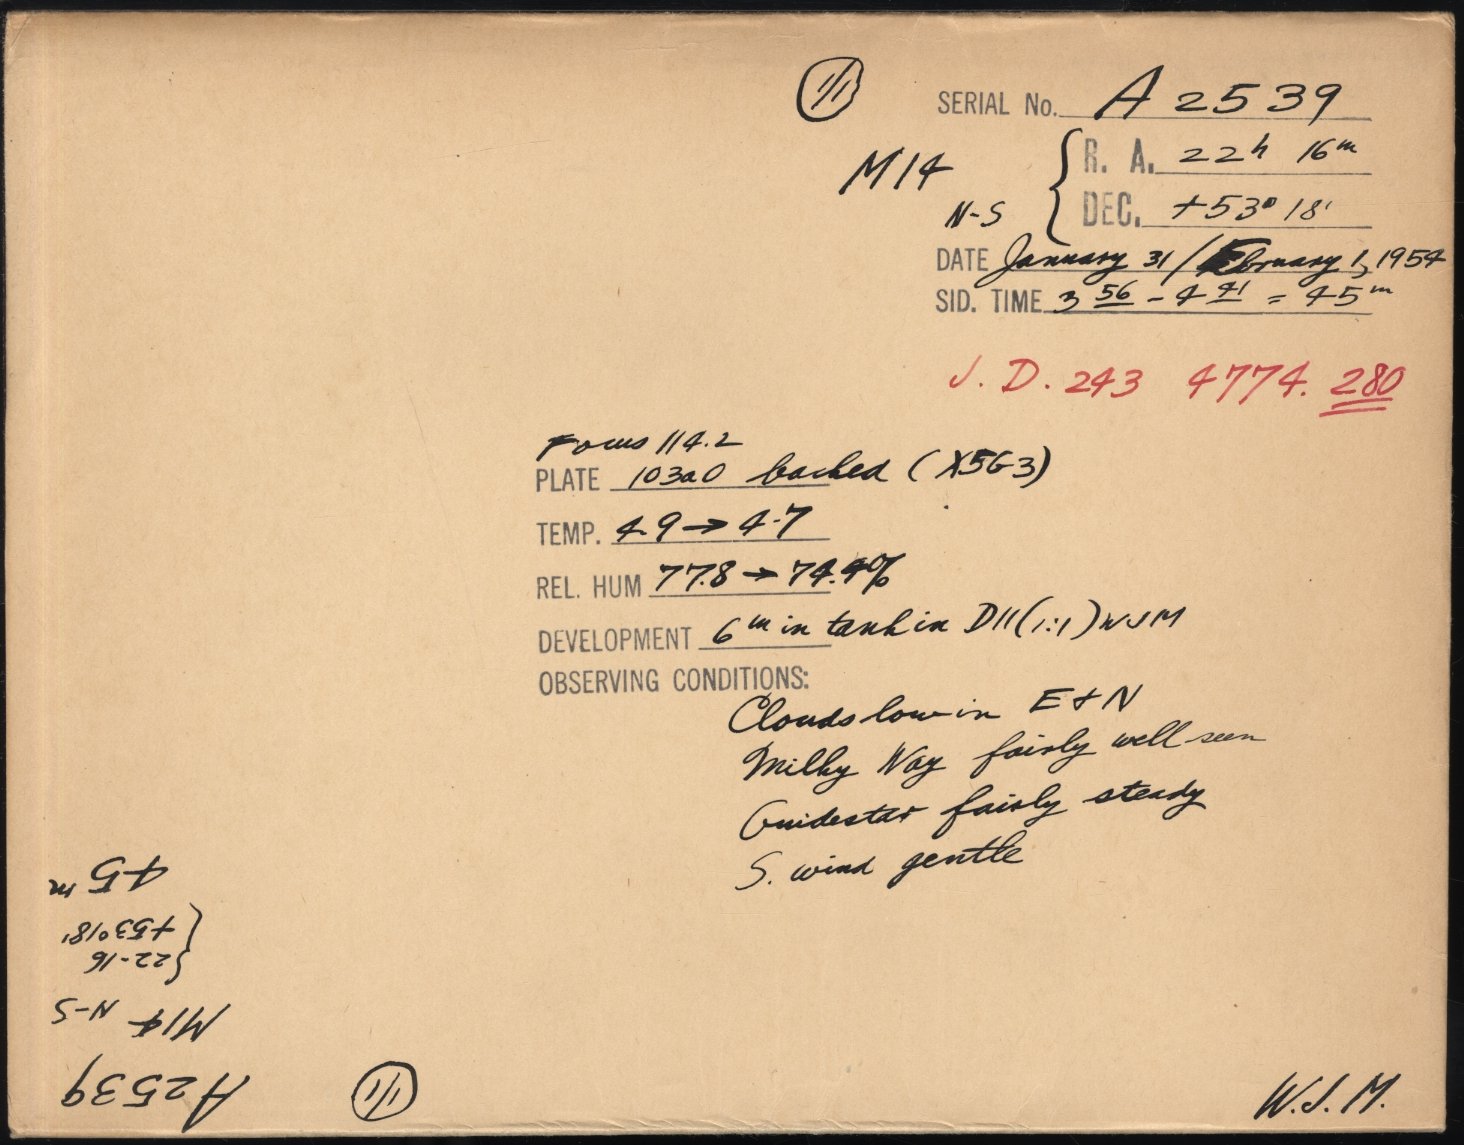 1/1
SERIAL No. A 2539
M14
R. A. 22h 16m
N-S
DEC. +53° 18'
DATE January 31/February 1, 1954
SID. TIME 3 56 - 4 41 = 45m
J. D. 243 4774. 280
Focus 114.2
PLATE 103aO backed (X5G3)
TEMP. 4.9 → 4.7
REL. HUM 77.8 → 74.4%
DEVELOPMENT 6m in tank in D11 (1:1) WJM
OBSERVING CONDITIONS:
Clouds low in E & N
Milky Way fairly well seen
Guidestar fairly steady
S. wind gentle
W.J.M.
1/1
A2539
M14 N-S
22-16
+53°18'
45m